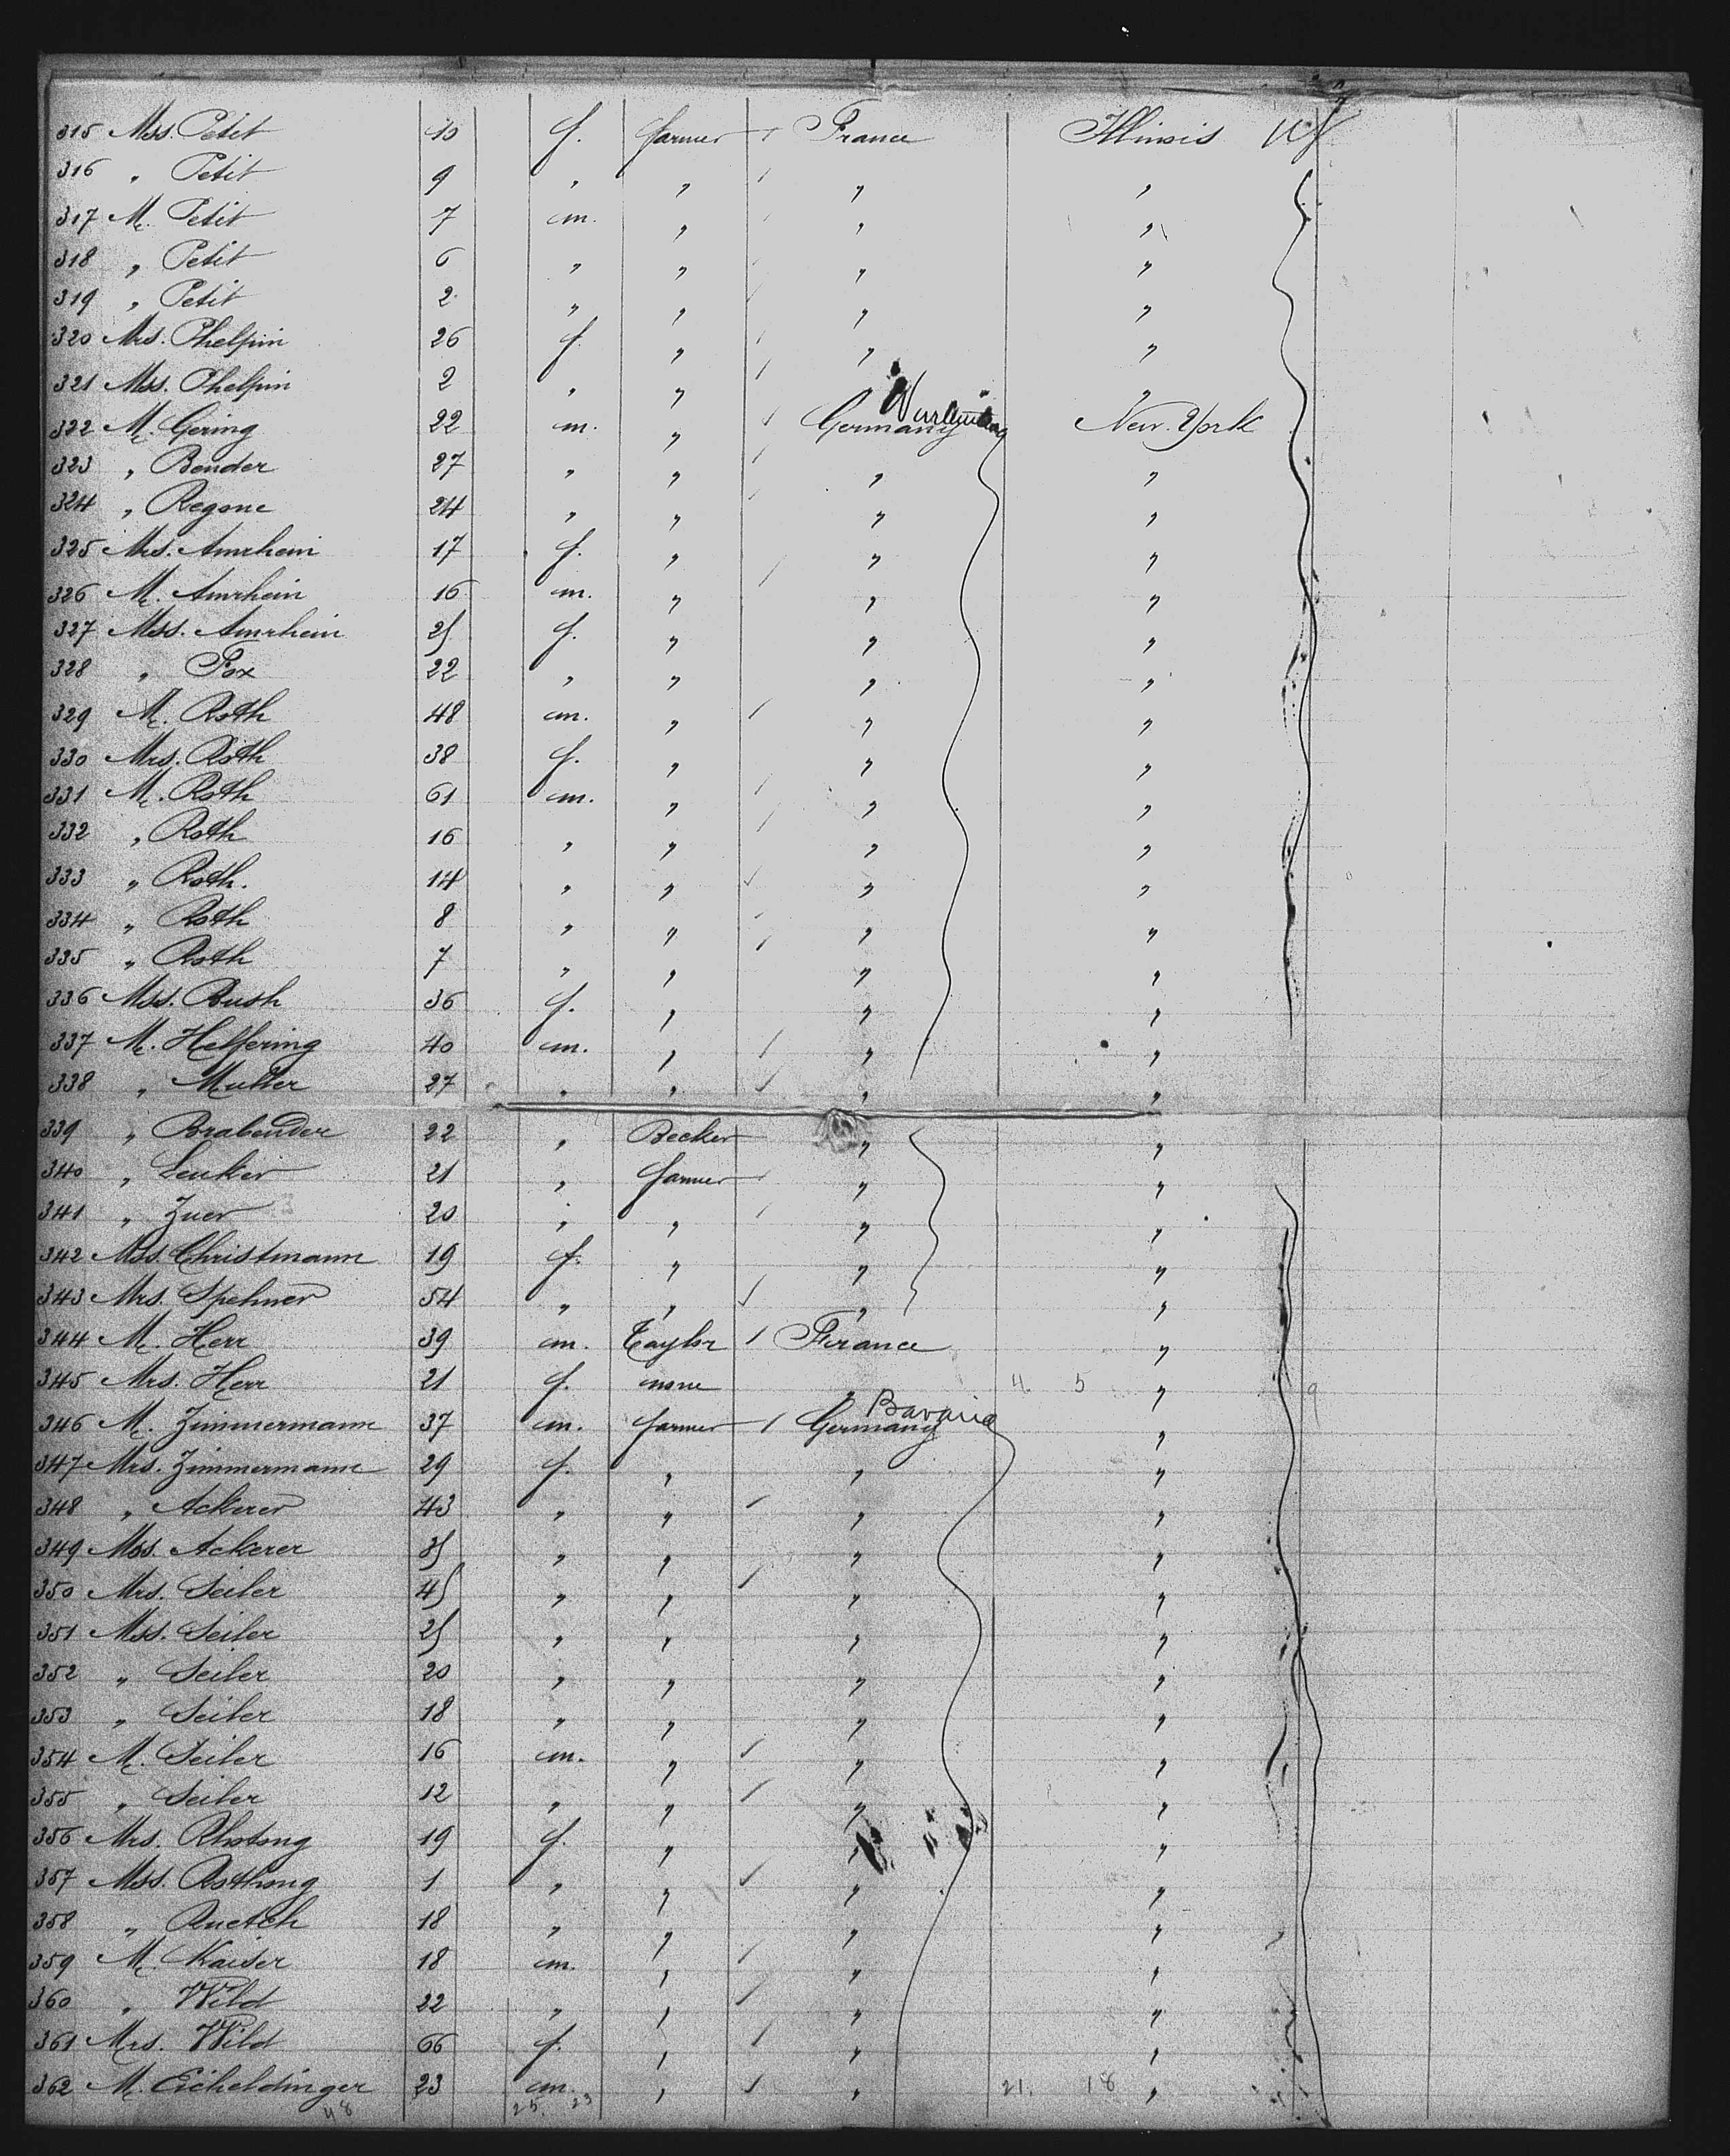 315 Mss. Petit 10 f. farmer France Illinois
316 " Petit 9 " " " "
317 M. Petit 7 m. " " "
318 " Petit 6 " " " "
319 " Petit 2 " " " "
320 Mrs. Phelpin 26 f. " " "
321 Mss. Phelpin 2 " " " "
322 M. Gering 22 m. " Germany New-York
323 " Bender 27 " " " "
324 " Regone 24 " " " "
325 Mrs. Amrhein 17 f. " " "
326 M. Amrhein 16 m. " " "
327 Mss. Amrhein 25 f. " " "
328 " Fox 22 " " " "
329 M. Roth 48 m. " " "
330 Mrs. Roth 38 f. " " "
331 M. Roth 61 m. " " "
332 " Roth 16 " " " "
333 " Roth. 14 " " " "
334 " Roth 8 " " " "
335 " Roth 7 " " " "
336 Mss. Bush 36 f. " " "
337 M. Helfering 40 m. " " "
338 " Muller 27 " " " "
339 " Brabender 22 " Becker " "
340 " Leuker 21 " farmer " "
341 " Zuer 20 " " " "
342 Mss. Christmann 19 f. " " "
343 Mrs. Spehner 54 " " " "
344 M. Herr 39 m. Taylor France "
345 Mrs. Herr 21 f. none " 4 5 " 9
Bavaria
346 M. Zimmermann 37 m. farmer Germany "
347 Mrs. Zimmermann 29 f. " " "
348 " Ackerer 43 " " " "
349 Mss. Ackerer 35 " " " "
350 Mrs. Seiler 45 " " " "
351 Mss. Seiler 25 " " " "
352 " Seiler 20 " " " "
353 " Seiler 18 " " " "
354 M. Seiler 16 m. " " "
355 " Seiler 12 " " " "
356 Mrs. Rhotong 19 f. " " "
357 Mss. Rothong 1 " " " "
358 " Ruetch 18 " " " "
359 M. Kaiser 18 m. " " "
360 " Wild 22 " " " "
361 Mrs. Wild 66 f. " " "
362 M. Eicheldinger 23 m. " " 21. 18 "
48 25. 23